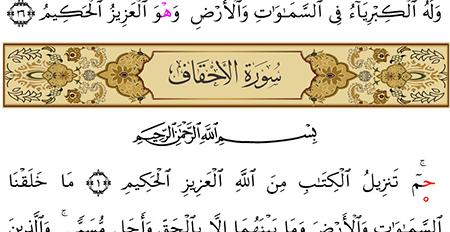 وَلَهُ الْكِبْرِيَآءُ فِي السَّمَٰوَٰتِ وَالْأَرْضِ وَهْوَ الْعَزِيزُ الْحَكِيمُ ﴿٣٦﴾
سُورَةُ الْأَحْقَافِ
بِسْمِ اللَّهِ الرَّحْمَٰنِ الرَّحِيمِ
حمٓ ۚ تَنزِيلُ الْكِتَٰبِ مِنَ اللَّهِ الْعَزِيزِ الْحَكِيمِ ﴿١﴾ مَا خَلَقْنَا
السَّمَٰوَٰتِ وَالْأَرْضَ وَمَا بَيْنَهُمَا إِلَّا بِالْحَقِّ وَأَجَلٍ مُّسَمًّى ۚ وَالَّذِينَ